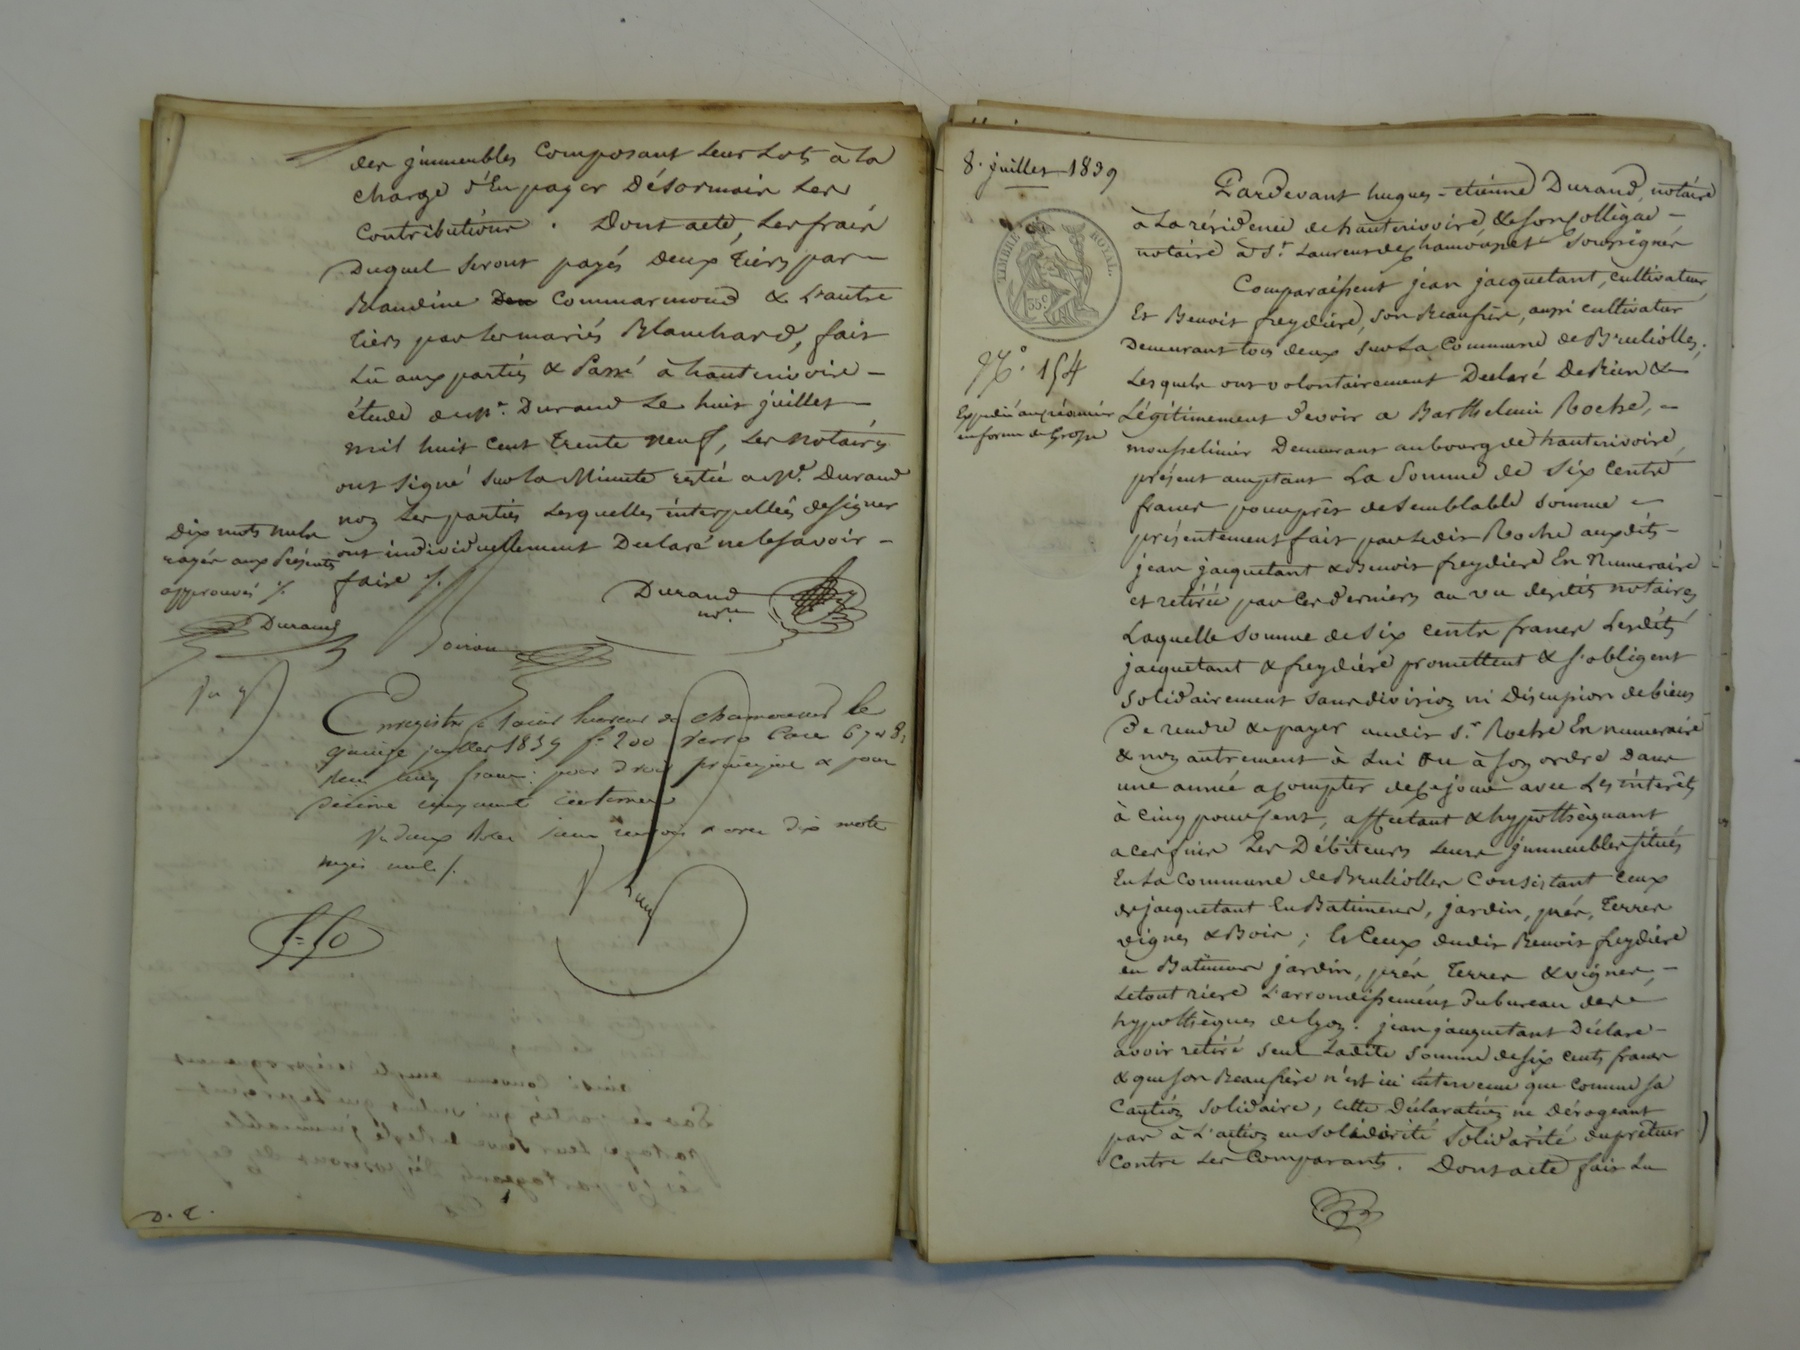 des jmmeubles Composant Leurs Lots à la
charge d'En payer Désormais Les
Contributions. Dont acte, Les frais
Duquel seront payés Deux tiers par
Blandine Commarmond & L'autre
tiers par les mariés Blanchard, fait
Lû aux parties & Passé à hauterivoire
étude de Me. Durand Le huit juillet
mil huit cent trente neuf, Les notaires
ont signé sur la Minute restée a Me. Durand
non Les parties Lesquelles interpellées de signer
ont individuellement Declaré ne le savoir
faire /.
Dix mots nuls
rayés aux présentes
approuvés /.
Durand
Durand
nre.
Enregistré à Saint Laurent de chamousset le
quinze juillet 1839 fo 200 verso Case 6 7 & 8,
reçu cinq francs pour droit principal & pour
décime cinquante centimes
rayés nuls /.
D. C.
8. juillet 1839
TIMBRE ROYAL.
35c
No. 154
Expédié au créancier
en forme de Grosse
Pardevant hugues-etienne Durand, notaire
à La résidence de hauterivoire & son Collègue
notaire à St. Laurent de Chamousset Soussignés
Comparaissent jean jacquetant, cultivateur
Et Benoit freydière, son Beaufrère, aussi cultivateur
Demeurant tous deux sur La Commune de Brullioles,
Lesquels ont volontairement Declaré De Rien &
Légitimement Devoir a Barthelmi Roche,
mousselinier Demeurant au bourg de hauterivoire
présent acceptant La Somme de Six Cents
francs pour prêt de Semblable Somme
présentement fait par Ledit Roche auxdits
jean jacquetant & Benoit freydière En Numeraire
et retirée par Ces derniers au vu desdits notaires
Laquelle somme de six cents francs Lesdits
jacquetant & freydière promettent & s'obligent
Solidairement sans division ni Discussion de biens
De rendre & payer audit Sr. Roche En numeraire
& non autrement à Lui ou à son ordre Dans
une année a compter de ce jour avec Les intérêts
à Cinq pour Cent, affectant & hypothèquant
a ces fins Les Débiteurs Leurs jmmeubles situés
En La Commune de Brullioles Consistant ceux
de jacquetant En Batimens, jardin, prés, Terres
vignes & Bois; Et Ceux dudit Benoit freydière
en Batimens jardin, prés, Terres & vignes,
Le tout riere L'arrondissement du bureau des
hypothèques de Lyon. jean jacquetant Déclare
avoir retiré seul Ladite somme de six cents francs
& que son Beaufrère n'est ici intervenu que comme sa
Caution Solidaire, cette Déclaration ne dérogeant
pas à L'action en solidarité Solidarité du prêteur
Contre Les Comparants. Dont acte fait Lu